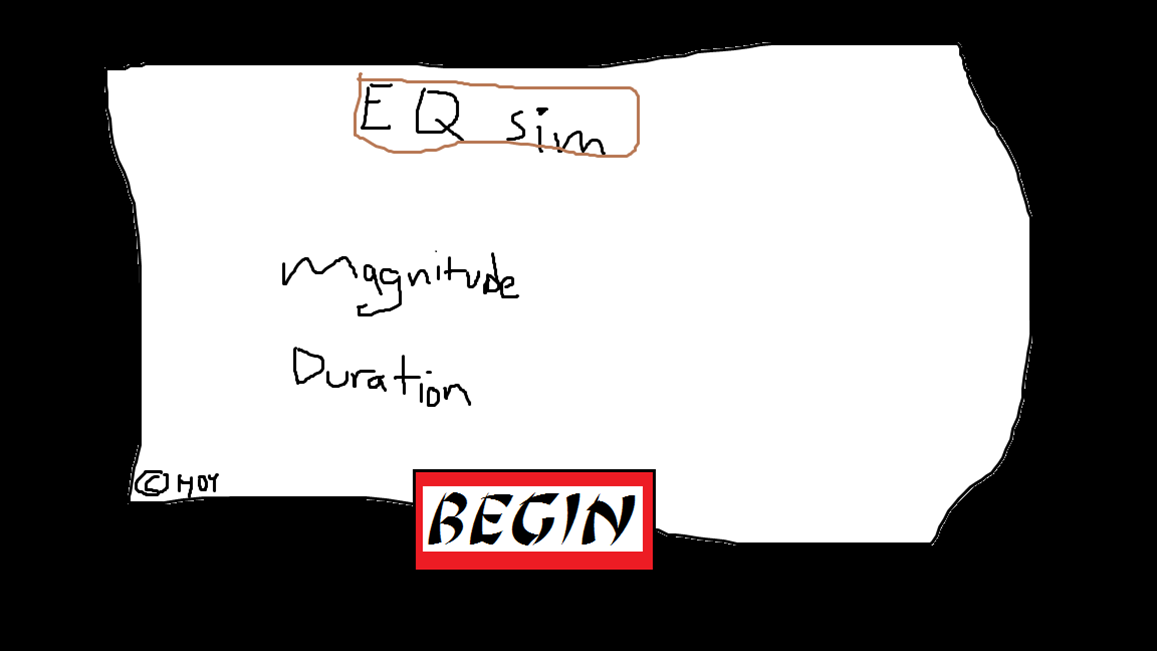 EQ sim
Magnitude
Duration
© HOY
BEGIN